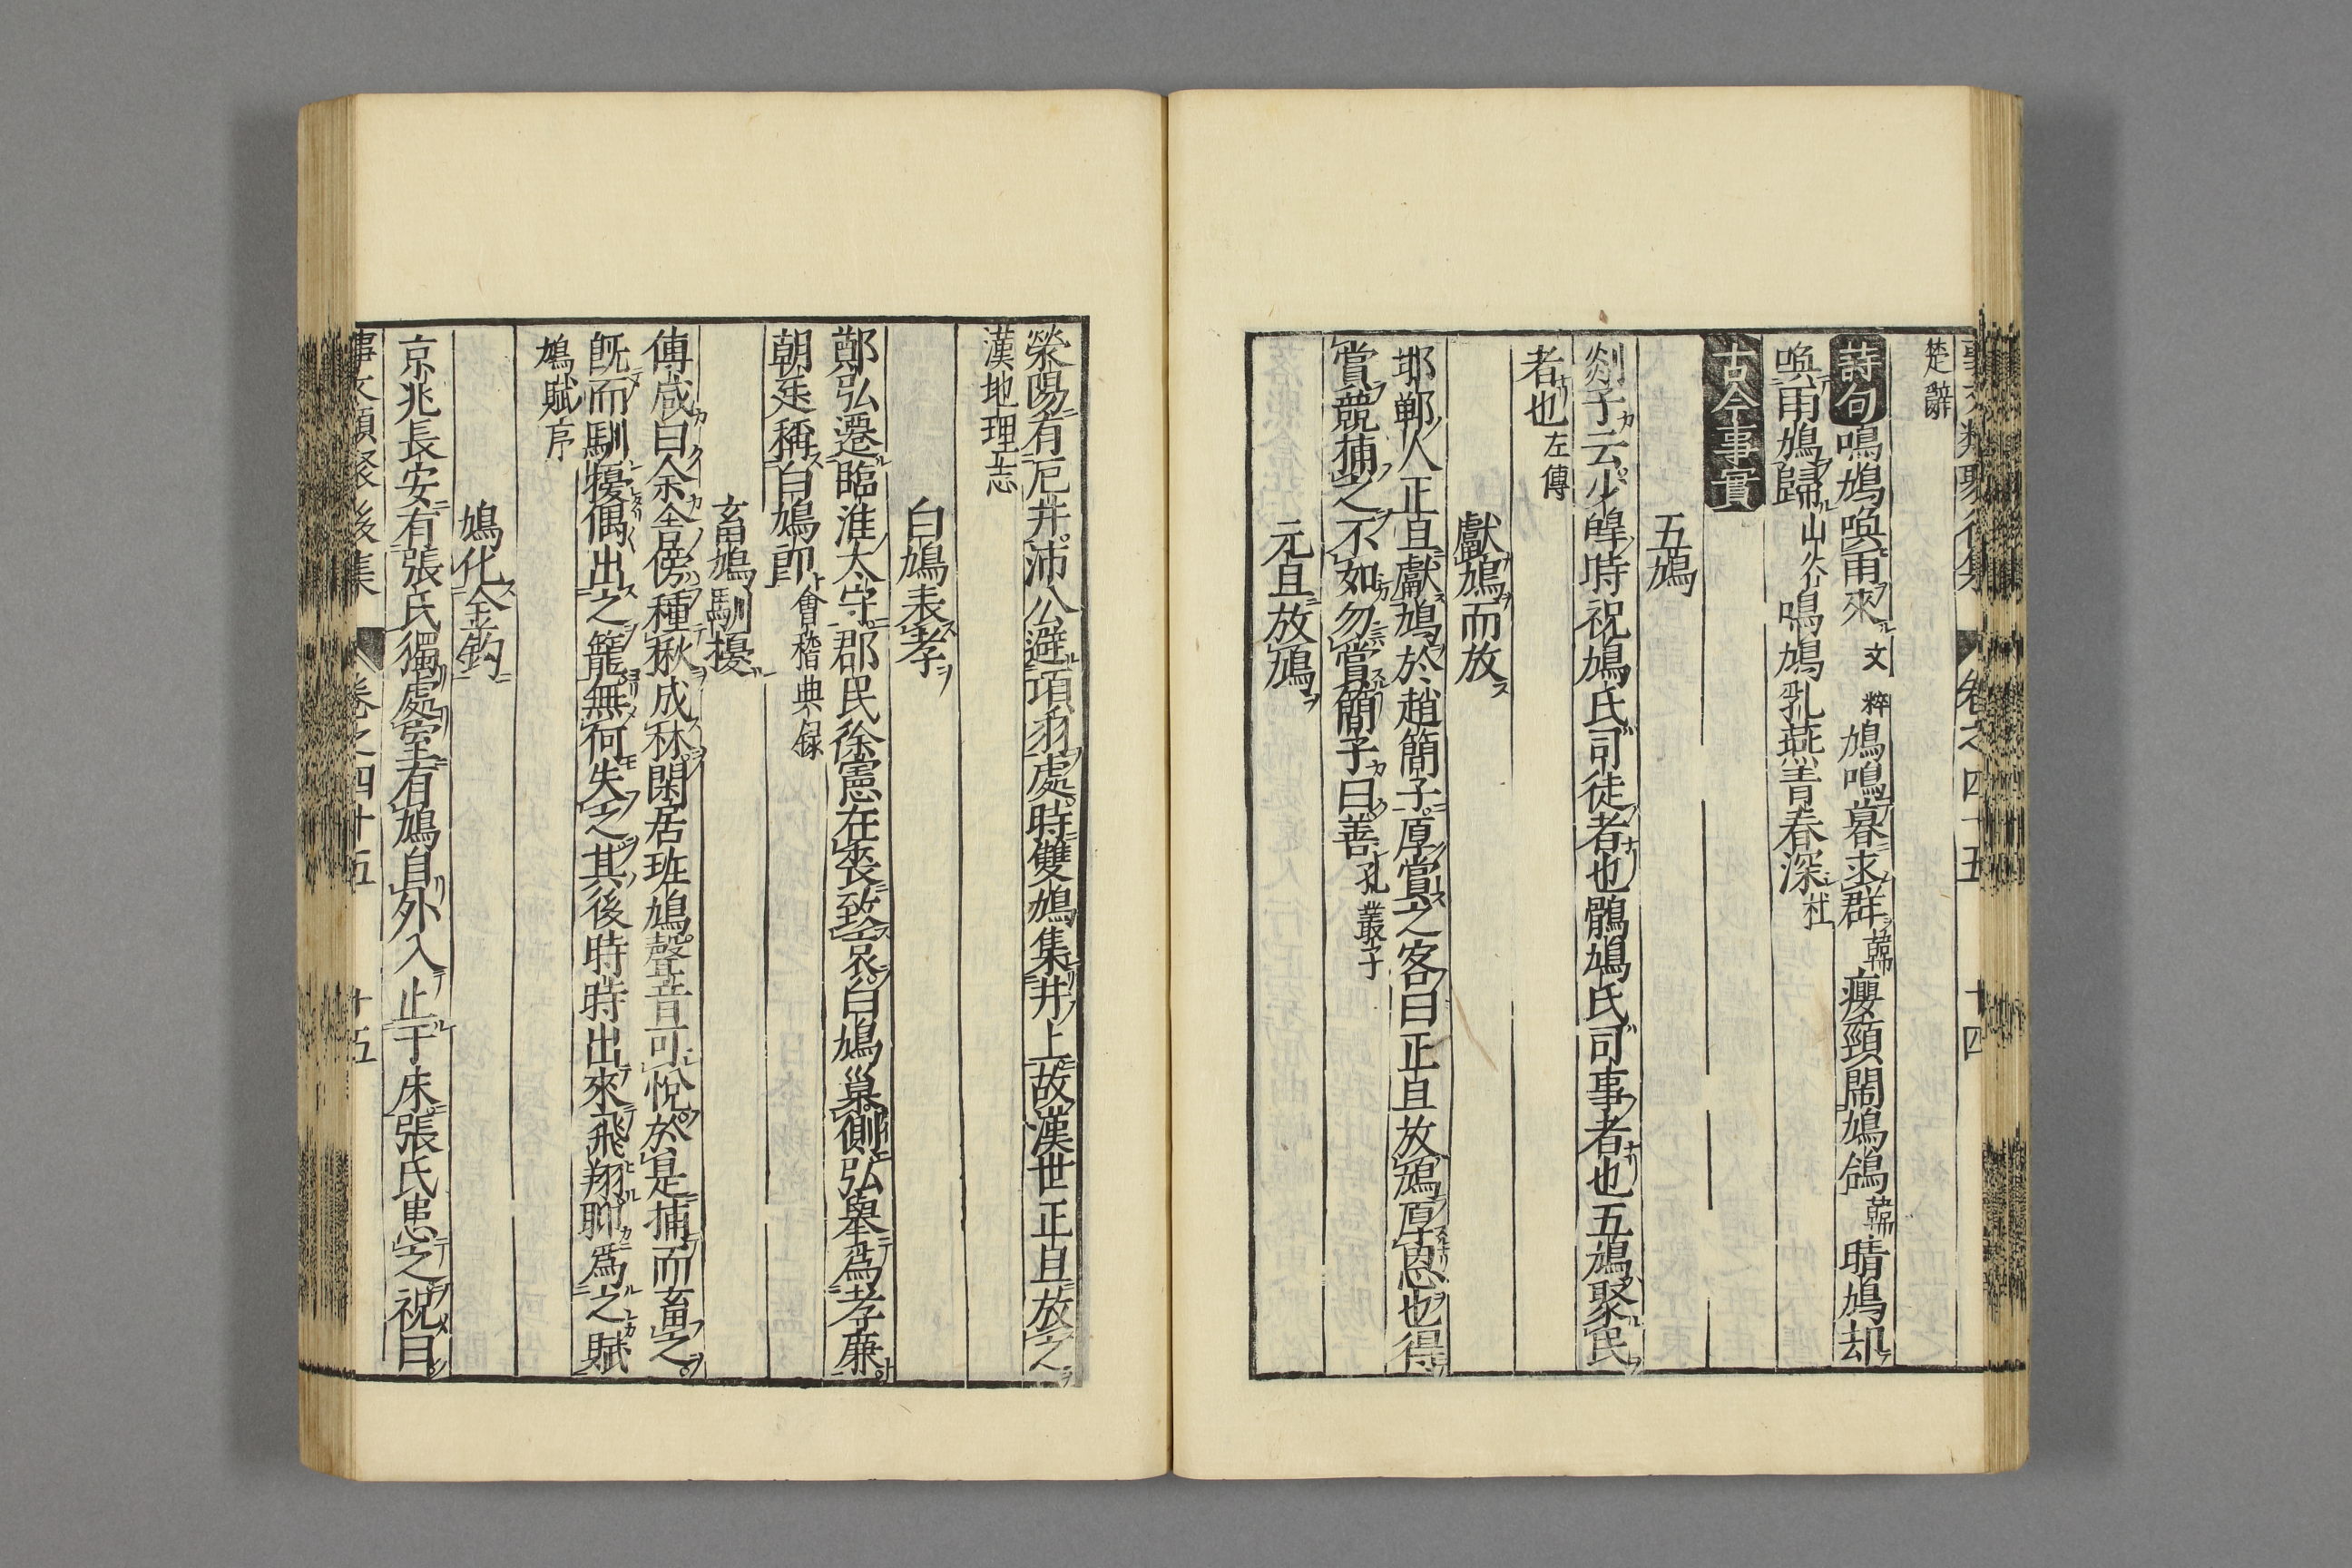 事文類聚後集 卷之四十五 十四
楚辭
詩句 鳴鳩喚雨來 文粹 鳩鳴暮求群 韓 癭頸鬧鳩鴿 韓 晴鳩却
喚雨鳩歸 山谷 鳴鳩乳燕青春深 杜
古今事實
五鳩
剡子云少皥時祝鳩氏司徒者也鶻鳩氏司事者也五鳩聚民
者也 左傳
獻鳩而放
邯鄲人正旦獻鳩於趙簡子厚賞之客曰正旦放鳩厚恩也得
賞競捕之不如勿賞簡子曰善 孔叢子
元旦放鳩
滎陽有厄井沛公避項羽處時雙鳩集井上故漢世正旦放之
漢地理志
白鳩表孝
鄭弘遷臨淮太守郡民徐憲在喪致哀白鳩巢側弘舉爲孝廉
朝廷稱白鳩郎 會稽典録
畜鳩馴擾
傅咸曰余舍傍種楸成林閑居班鳩聲音可悅於是捕而畜之
旣而馴擾偶出之籠無何失之其後時時出來飛翔聊爲之賦
鳩賦序
鳩化金鈎
京兆長安有張氏獨處室有鳩自外入止于床張氏患之祝曰
事文類聚後集 卷之四十五 十五